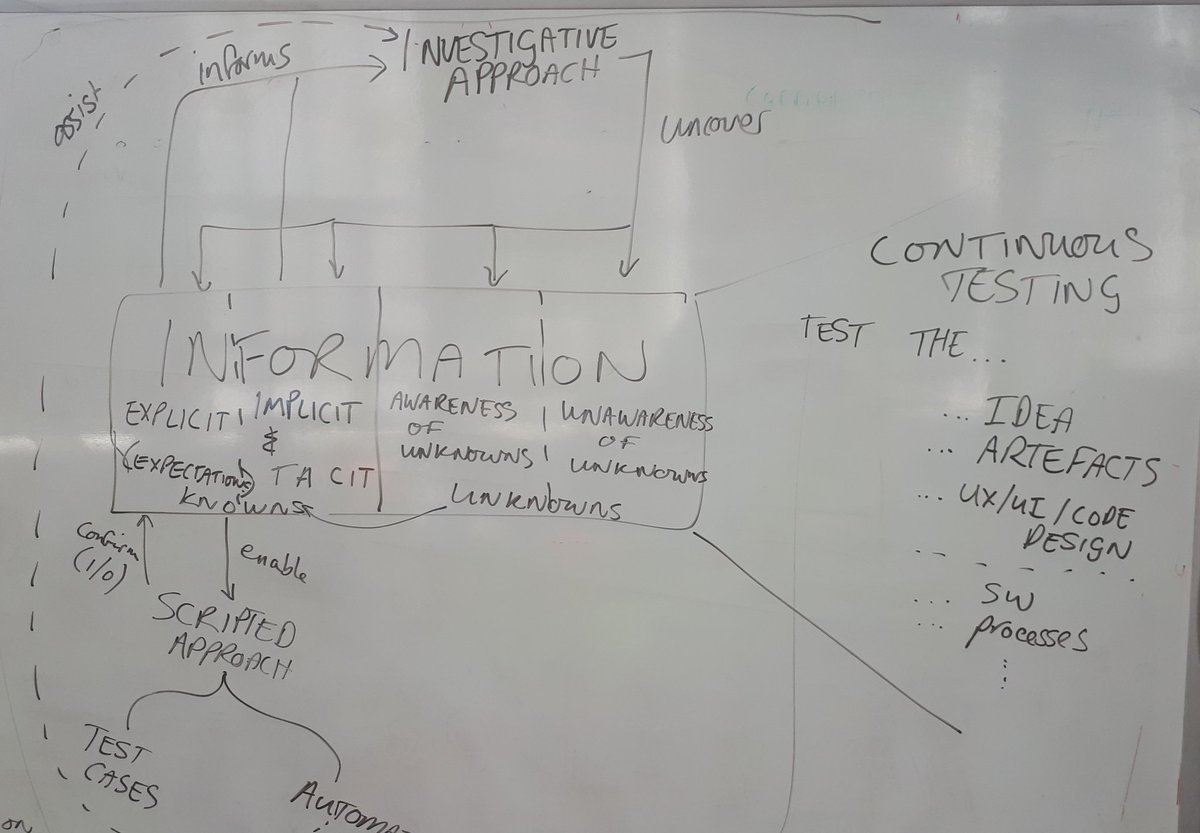 informs
INVESTIGATIVE
APPROACH
assist
uncover
INFORMATION
EXPLICIT
(EXPECTATIONS)
IMPLICIT
&
TACIT
KNOWNS
AWARENESS
OF
UNKNOWNS
UNAWARENESS
OF
UNKNOWNS
UNKNOWNS
Confirm
(1/0)
enable
SCRIPTED
APPROACH
TEST
CASES
AUTOMA
on
CONTINUOUS
TESTING
TEST THE...
... IDEA
... ARTEFACTS
... UX/UI/CODE
DESIGN
... SW
... processes